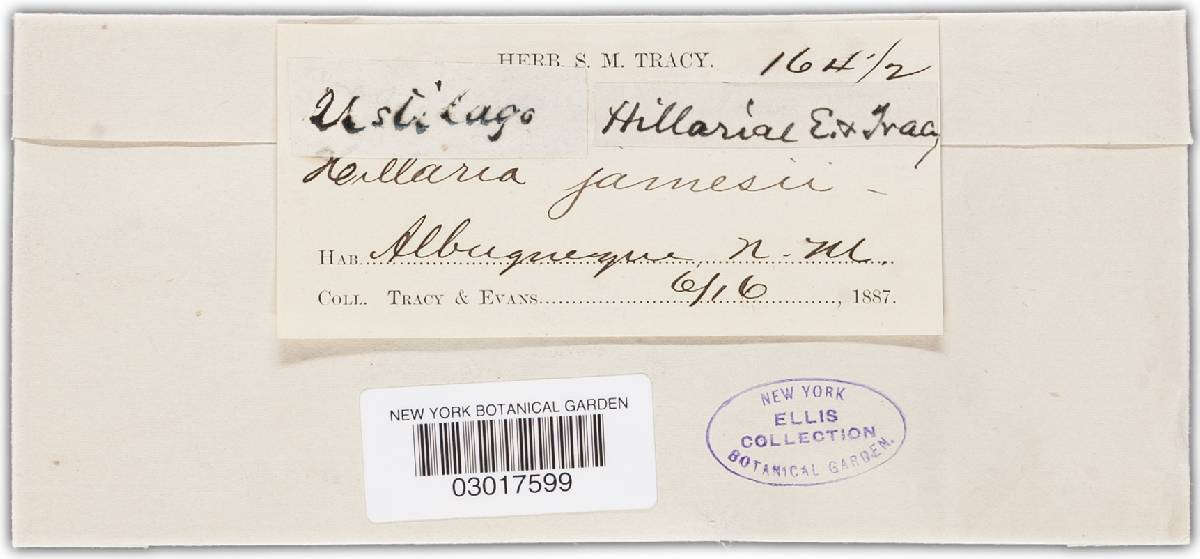 HERB. S. M. TRACY. 164 1/2
Ustilago Hillariae E. & Tracy
Hillaria jamesii -
HAB Albuqueque, N. M.
COLL. TRACY & EVANS 6/16, 1887.
NEW YORK BOTANICAL GARDEN
03017599
NEW YORK
ELLIS
COLLECTION
BOTANICAL GARDEN.